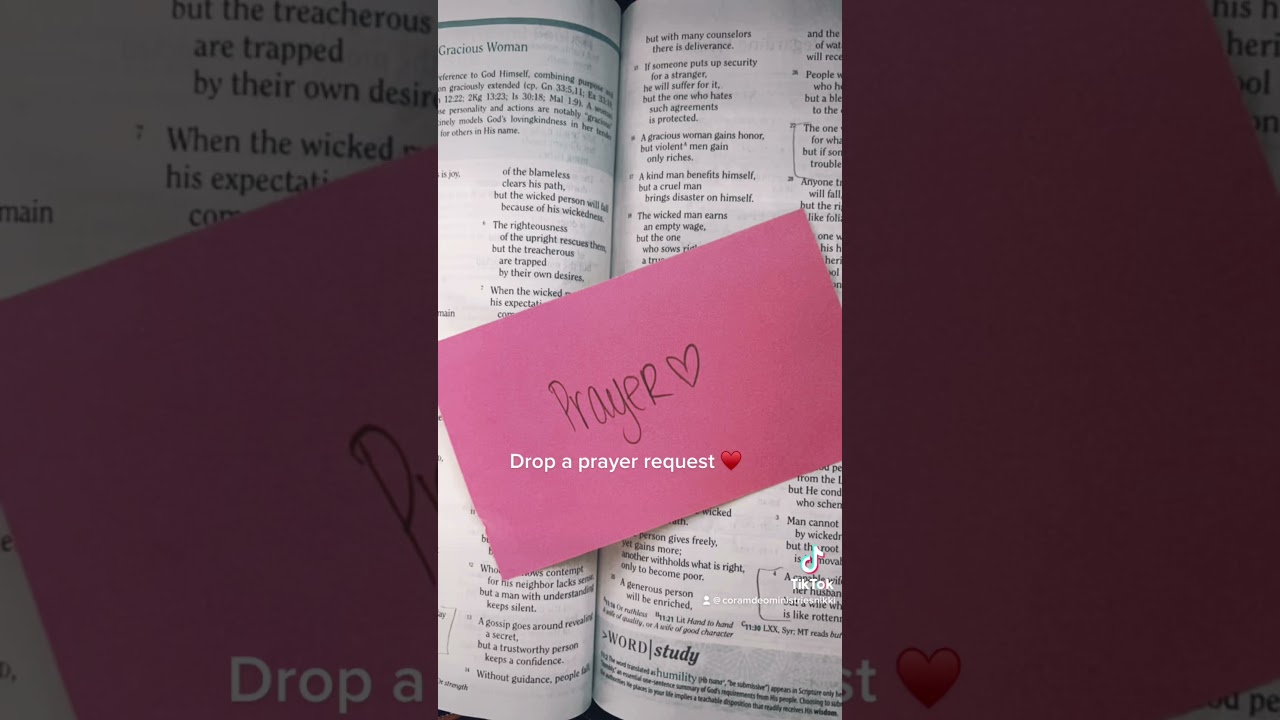 but the treacherous
are trapped
by their own desire
7 When the wicked
his expectati
main
com
Gracious Woman
eference to God Himself, combining purpose
on graciously extended (cp. Gn 33:5,11; Ex
12:22; 2Kg 13:23; Is 30:18; Mal 1:9). A woman
se personality and actions are notably "gracious"
nely models God's lovingkindness in her
for others in His name.
is joy,
of the blameless
clears his path,
but the wicked person will fall
because of his wickedness.
6 The righteousness
of the upright rescues them,
but the treacherous
are trapped
by their own desires.
7 When the wicked
his expectati
main
com
12 Who shows contempt
for his neighbor lacks sense,
but a man with understanding
keeps silent.
13 A gossip goes around revealing
a secret,
but a trustworthy person
keeps a confidence.
14 Without guidance, people fall,
or strength
but with many counselors
there is deliverance.
15 If someone puts up security
for a stranger,
he will suffer for it,
but the one who hates
such agreements
is protected.
16 A gracious woman gains honor,
but violent men gain
only riches.
17 A kind man benefits himself,
but a cruel man
brings disaster on himself.
18 The wicked man earns
an empty wage,
but the one
who sows rig
a tru
Prayer♡
Drop a prayer request ♥️
wicked
ath.
person gives freely,
yet gains more;
another withholds what is right,
only to become poor.
25 A generous person
will be enriched,
11:16 Or ruthless 11:21 Lit Hand to hand
A wife of quality, or A wife of good character
11:30 LXX, Syr; MT reads but
>WORD|study
11:2 The word translated as humility
appears in Scripture only
an essential one-sentence summary of God's requirements from His people. Choosing to
authorities He places in your life implies a teachable disposition that readily receives His wisdom.
and the
of wat
will rece
26 People w
who h
but a ble
to the
27 The one
for wha
but if son
trouble
28 Anyone tr
will fall,
but the ri
like foli
one w
his h
heri
ool
from the L
but He cond
who schem
3 Man cannot
by wickedn
but the root
is immoval
4 A capable wife
her husban
but a wife wh
is like rotten
TikTok
@coramdeoministriesnikki
his h
heri
ool
Drop a
st ♥️
od pe